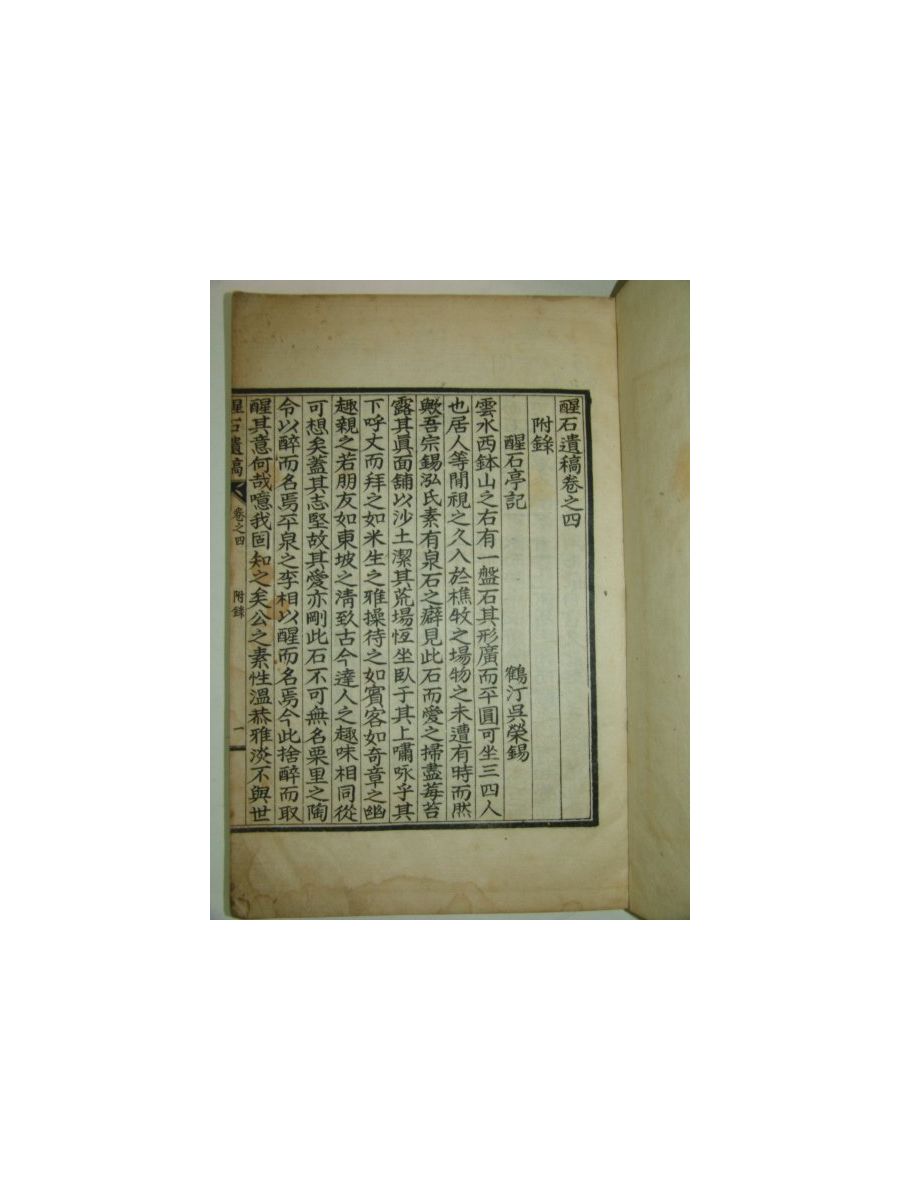 醒石遺稿卷之四
附錄
醒石亭記
鶴汀吳榮錫
雲水西鉢山之右有一盤石其形廣而平圓可坐三四人
也居人等閒視之久入於樵牧之場物之未遭有時而然
歟吾宗錫泓氏素有泉石之癖見此石而愛之掃盡莓苔
露其眞面舖以沙土潔其荒場恆坐臥于其上嘯咏乎其
下呼丈而拜之如米生之雅操待之如賓客如奇章之幽
趣親之若朋友如東坡之淸致古今達人之趣味相同從
可想矣蓋其志堅故其愛亦剛此石不可無名栗里之陶
令以醉而名焉平泉之李相以醒而名焉今此捨醉而取
醒其意何哉噫我固知之矣公之素性溫恭雅淡不與世
醒石遺稿 卷之四 附錄 一